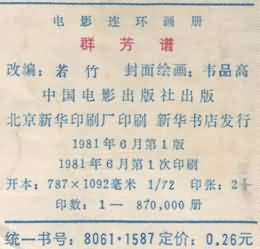 电影连环画册
群芳谱
改编：若竹 封面绘画：韦品高
中国电影出版社出版
北京新华印刷厂印刷 新华书店发行
1981年6月第1版
1981年6月第1次印刷
开本：787×1092毫米 1/72 印张：2
印数：1—870,000册
统一书号：8061·1587 定价：0.26元